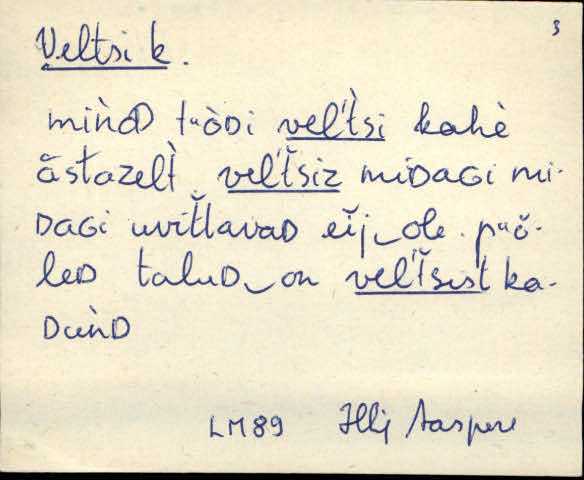 3
Veltsi k.
miǹᴅ tᵘòᴅi vel't̀si kahè
ǟstazelt̀. vel't̆siz miᴅaɢi mi-
ᴅaɢi uvit̆lavaᴅ eij‿ole. pᵘŏ-
leᴅ taluᴅ‿on vel't̆sist ka-
ᴅuǹᴅ
LM89 Illj Aaspere